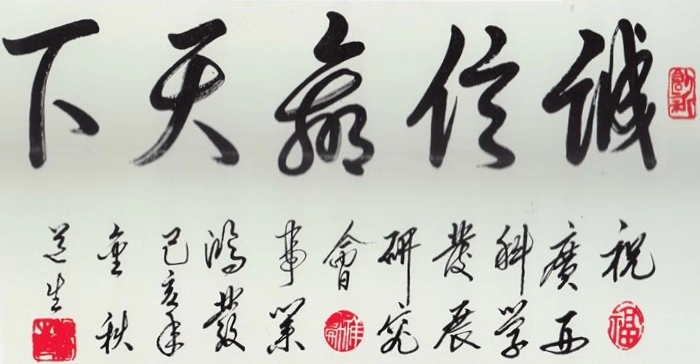 誠信贏天下
祝
廣西
科学
發展
研究
會
事業
鴻發
己亥年
金秋
道生
福